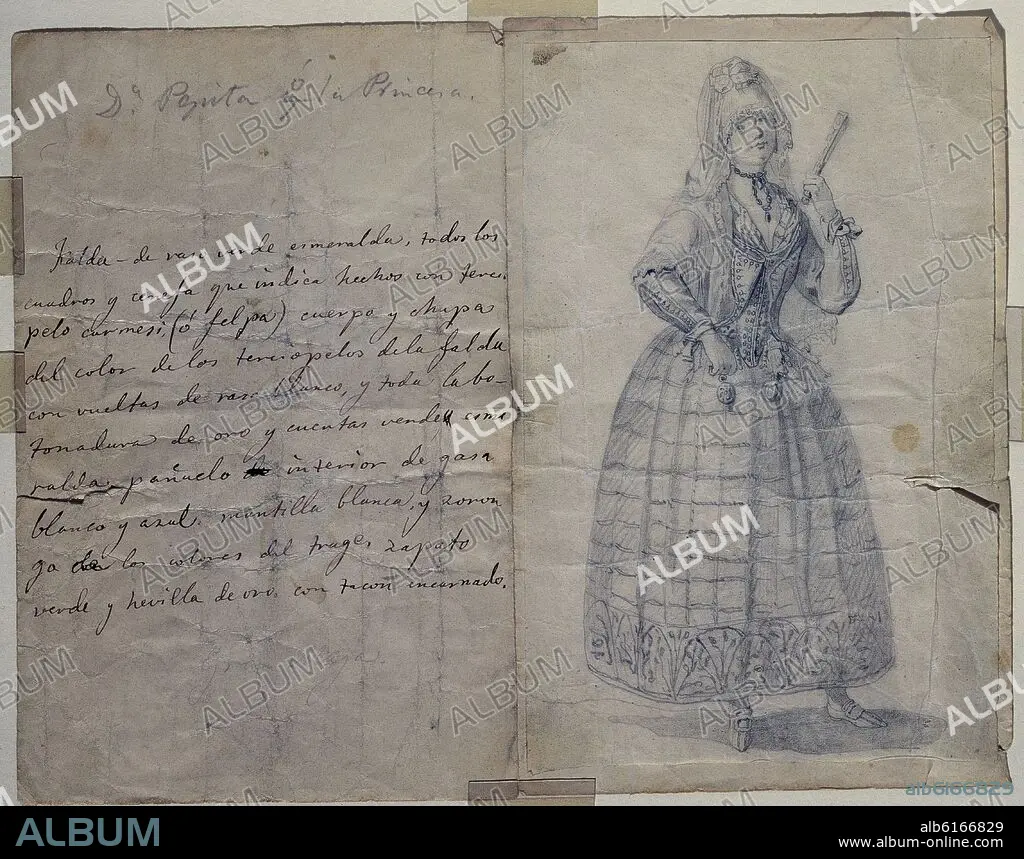 Dª Pepita ó la Princesa.
Falda - de raso verde esmeralda, todos los
cuadros y cenefa que indica hechos con tercio
pelo carmesi, (ó felpa) cuerpo y chupa
del color de los terciopelos de la falda
con vueltas de raso blanco, y toda la bo-
tonadura de oro y cuentas verdes esme
ralda, pañuelo interior de gasa
blanco y azul. mantilla blanca, y
ga de los colores del trage zapato
verde y hevilla de oro. con tacon encarnado.
ALBUM
alb6166829
ALBUM
alb6166829
www.album-online.com